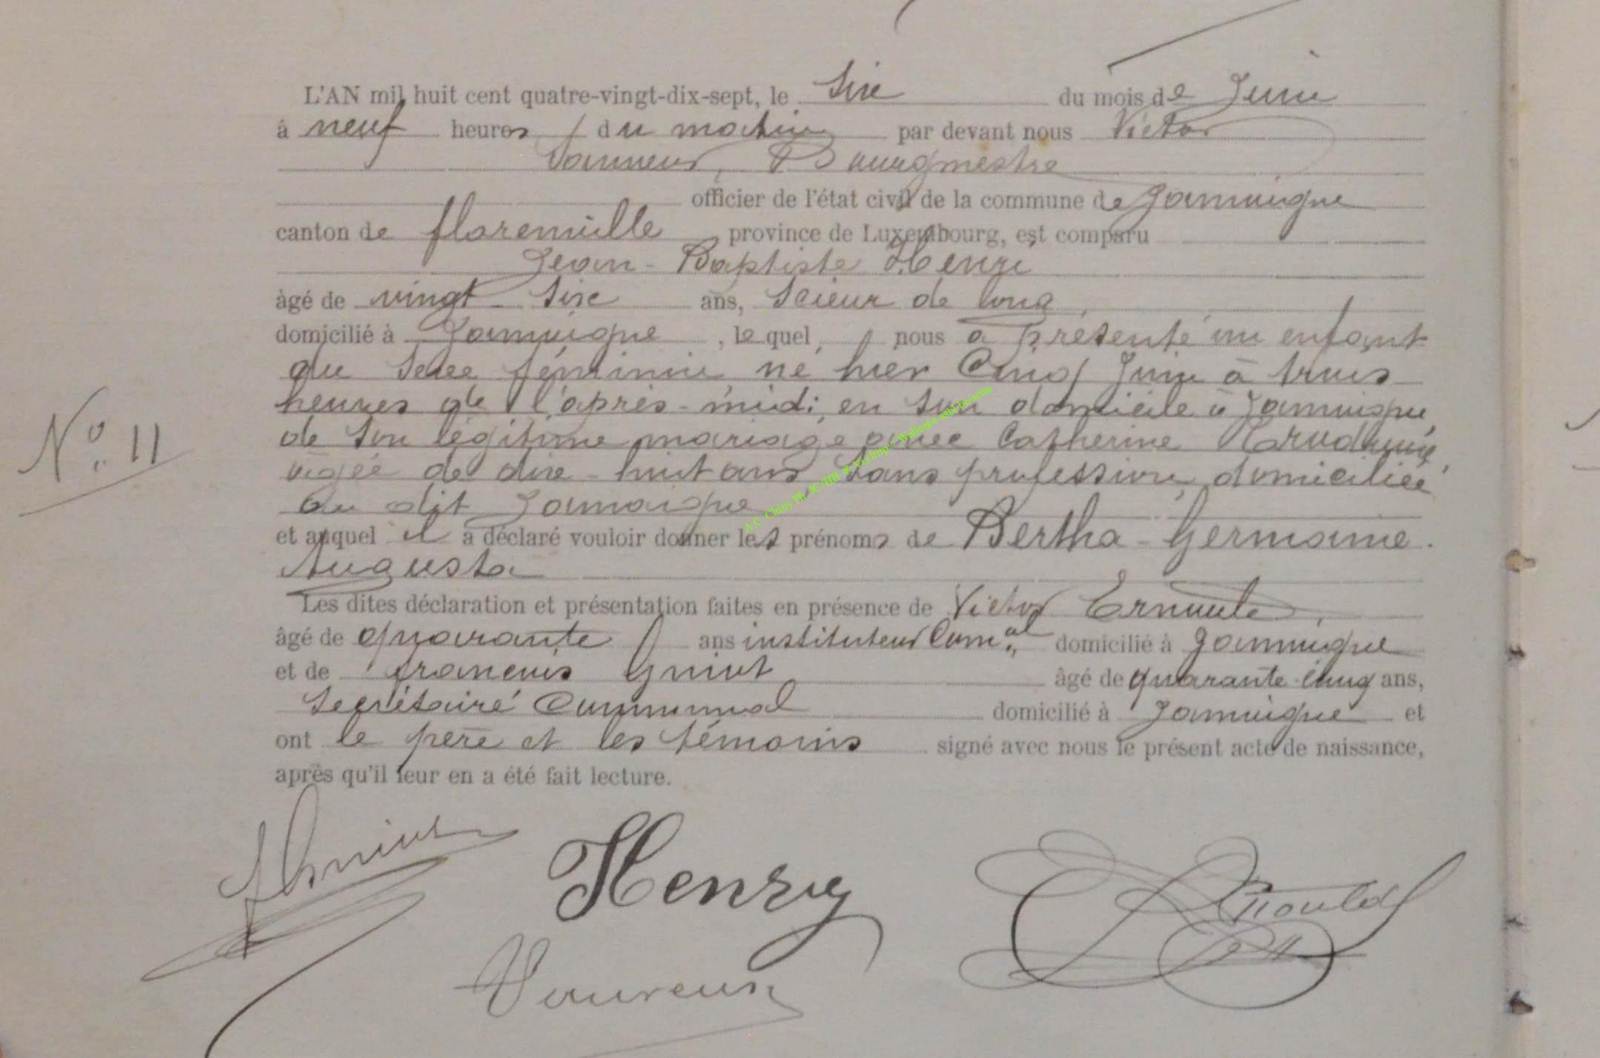 L'AN mil huit cent quatre-vingt-dix-sept, le Six du mois de Juin
à neuf heures du matin par devant nous Victor
Bourgmestre
officier de l'état civil de la commune de Jamoigne
canton de florenville province de Luxembourg, est comparu
Jean-Baptiste Henri
âgé de vingt-Six ans, Scieur de long
domicilié à Jamoigne, lequel, nous a présenté un enfant
du Sexe féminin, né hier Cinq Juin à trois
heures de l'après-midi, en Son domicile à Jamoigne,
de Son légitime mariage avec Catherine
âgée de dix-huit ans, Sans profession, domiciliée
au dit Jamoigne
et auquel il a déclaré vouloir donner les prénoms de Bertha-Germaine.
Augusta
Les dites déclaration et présentation faites en présence de Victor
âgé de quarante ans instituteur Com.al domicilié à Jamoigne
et de francois Guiot âgé de quarante-cinq ans,
Secrétaire Communal domicilié à Jamoigne et
ont le père et les témoins signé avec nous le présent acte de naissance,
après qu'il leur en a été fait lecture.
N° 11
Henry